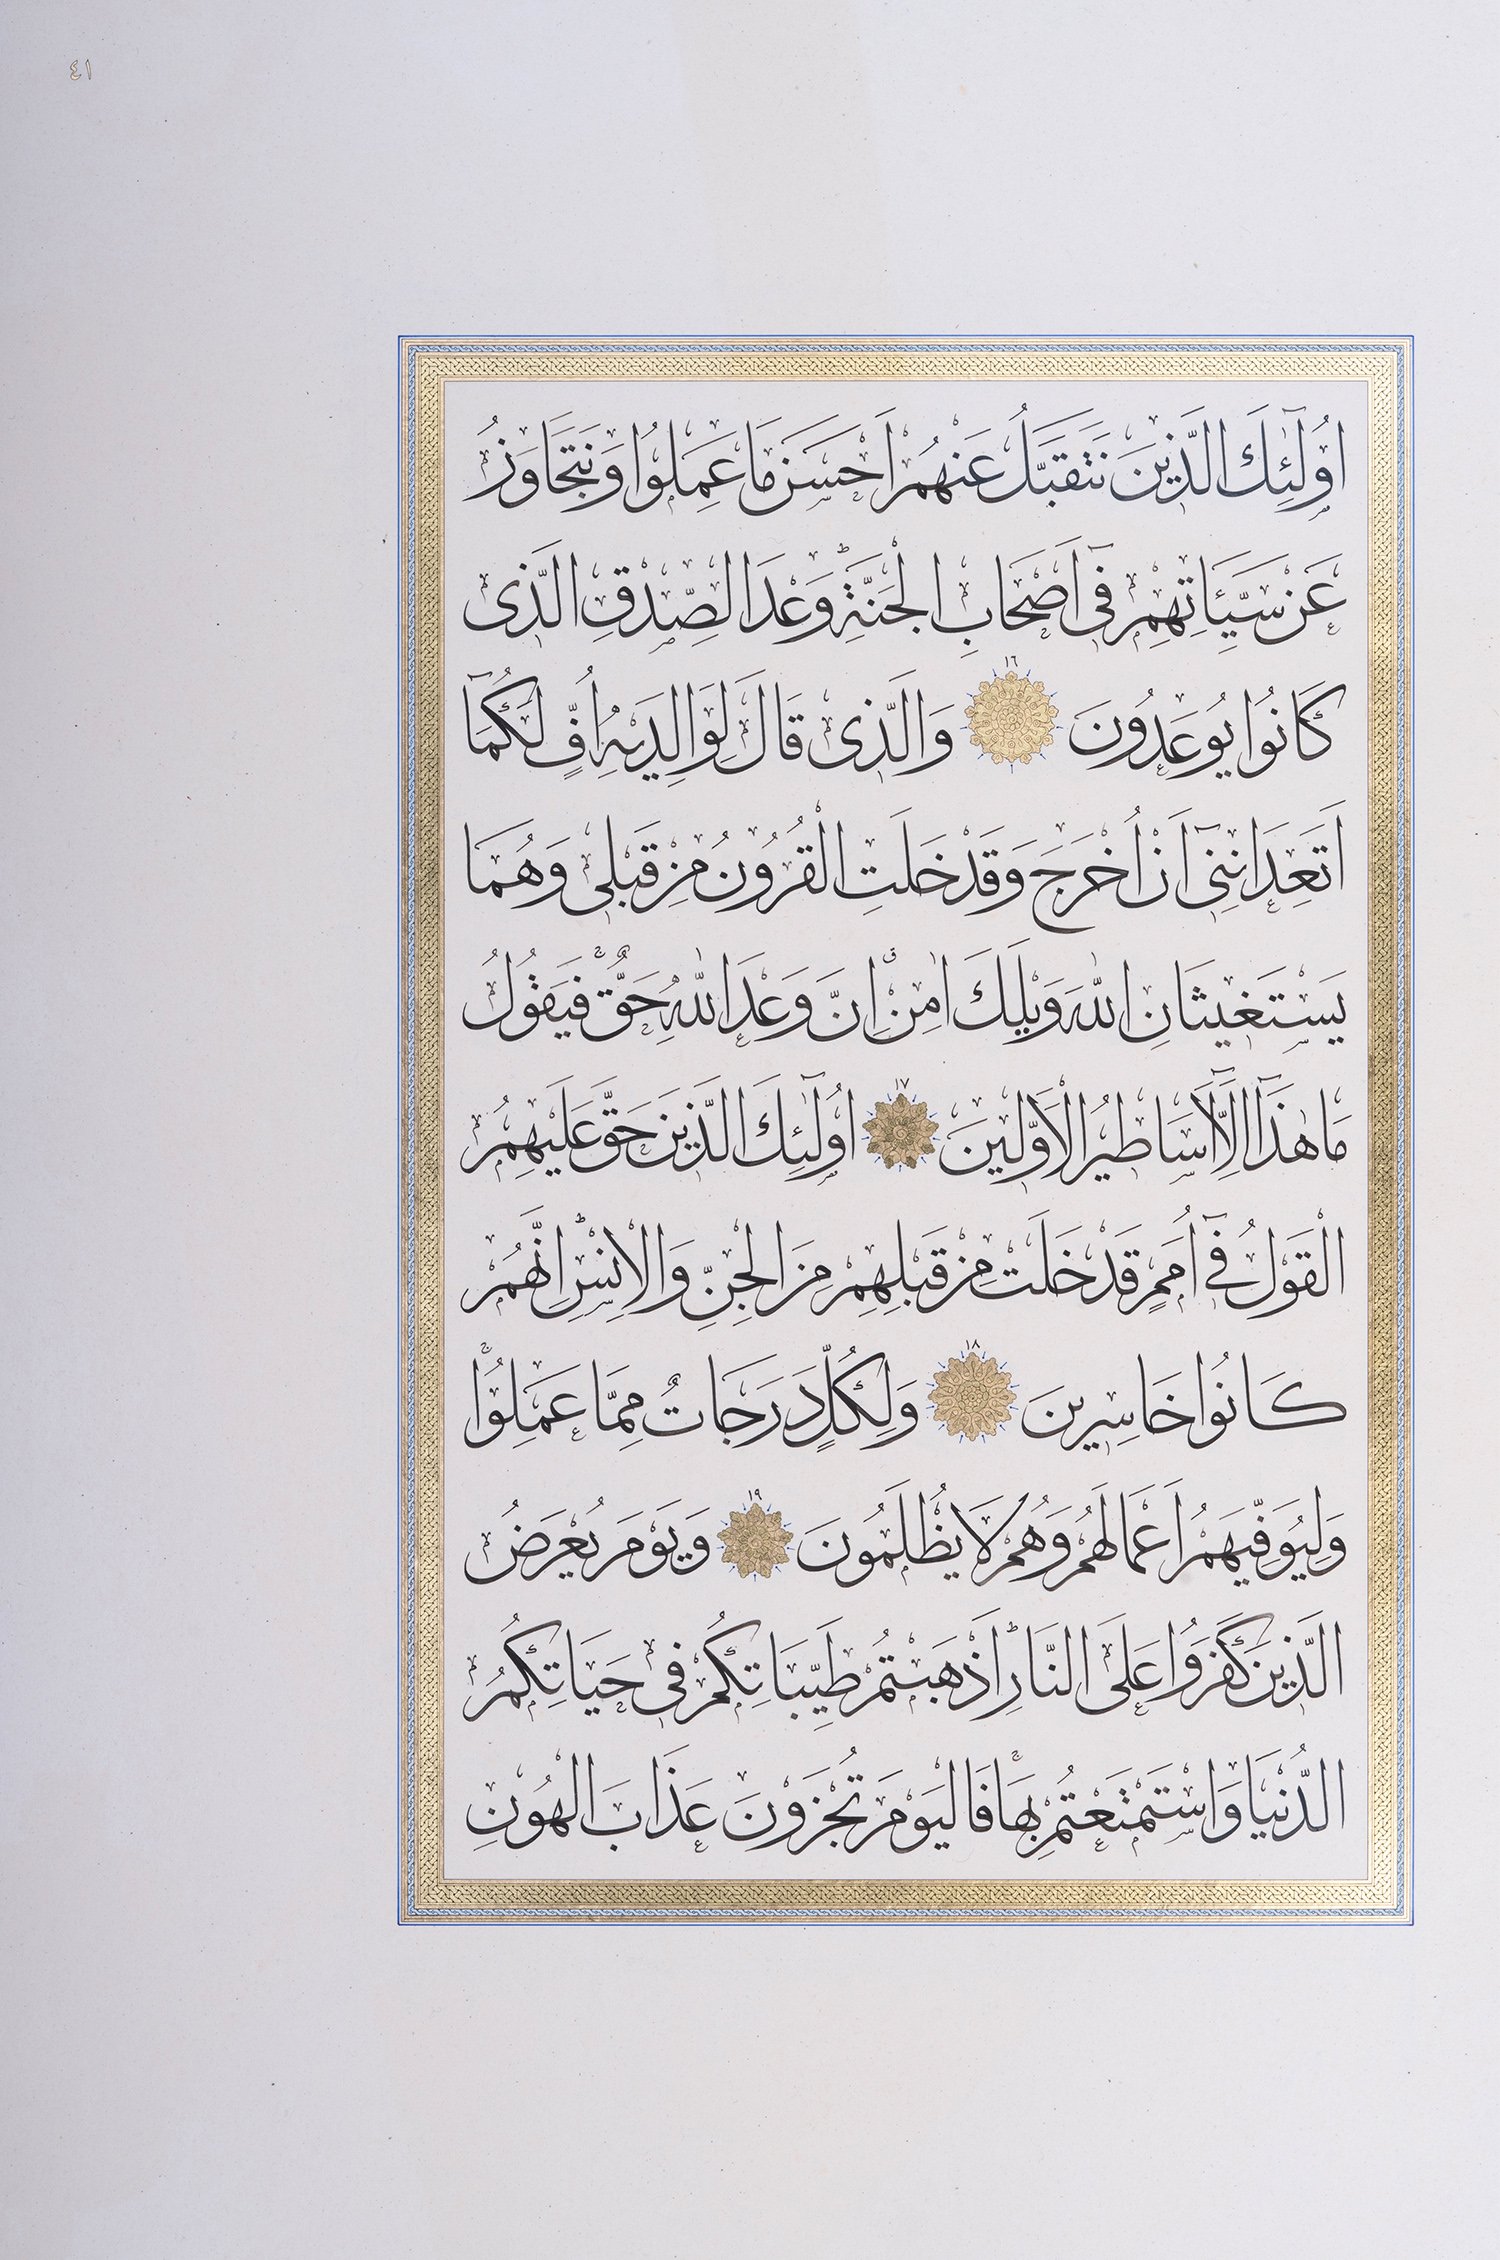 ٤١
اُولٰٓئِكَ الَّذ۪ينَ نَتَقَبَّلُ عَنْهُمْ اَحْسَنَ مَا عَمِلُوا وَنَتَجَاوَزُ
عَنْ سَيِّـَٔاتِهِمْ ف۪ٓى اَصْحَابِ الْجَنَّةِۜ وَعْدَ الصِّدْقِ الَّذ۪ى
كَانُوا يُوعَدُونَ ١٦ وَالَّذ۪ى قَالَ لِوَالِدَيْهِ اُفٍّ لَكُمَٓا
اَتَعِدَانِن۪ٓى اَنْ اُخْرَجَ وَقَدْ خَلَتِ الْقُرُونُ مِنْ قَبْل۪ى وَهُمَا
يَسْتَغ۪يثَانِ اللّٰهَ وَيْلَكَ اٰمِنْۗ اِنَّ وَعْدَ اللّٰهِ حَقٌّۚ فَيَقُولُ
مَا هٰذَٓا اِلَّٓا اَسَاط۪يرُ الْاَوَّل۪ينَ ١٧ اُولٰٓئِكَ الَّذ۪ينَ حَقَّ عَلَيْهِمُ
الْقَوْلُ ف۪ٓى اُمَمٍ قَدْ خَلَتْ مِنْ قَبْلِهِمْ مِنَ الْجِنِّ وَالْاِنْسِۜ اِنَّهُمْ
كَانُوا خَاسِر۪ينَ ١٨ وَلِكُلٍّ دَرَجَاتٌ مِمَّا عَمِلُواۚ
وَلِيُوَفِّيَهُمْ اَعْمَالَهُمْ وَهُمْ لَا يُظْلَمُونَ ١٩ وَيَوْمَ يُعْرَضُ
الَّذ۪ينَ كَفَرُوا عَلَى النَّارِۜ اَذْهَبْتُمْ طَيِّبَاتِكُمْ ف۪ى حَيَاتِكُمُ
الدُّنْيَا وَاسْتَمْتَعْتُمْ بِهَاۚ فَالْيَوْمَ تُجْزَوْنَ عَذَابَ الْهُونِ